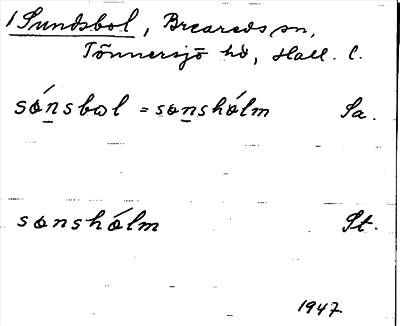 1 Sundsbol, Breareds sn,
Tönnersjö hd, Hall. l.
sónsbol = sonshólm Sa.
sonshólm St.
1947